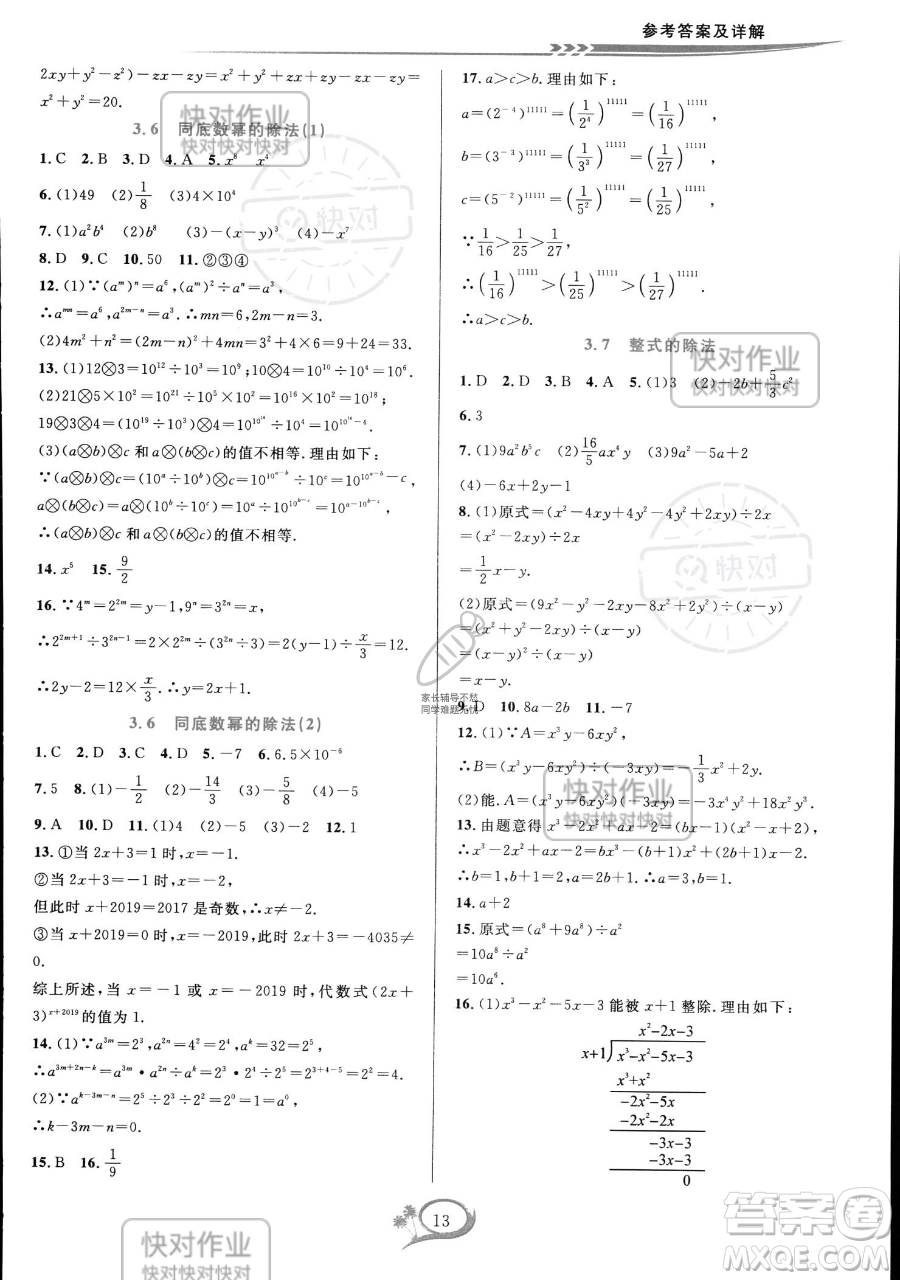 参考答案及详解
2xy+y²-z²)-zx-zy=x²+y²+z²-zx-zy=
x²+y²=20.
3.6 同底数幂的除法(1)
1.C 2.B 3.D 4.A 5.x⁸ x⁴
6.(1)49 (2)1/8 (3)4×10⁴
7.(1)a²b⁴ (2)b⁸ (3)-(x-y)³ (4)-x⁷
8.D 9.C 10.50 11.②③④
12.(1)∵(a^m)^n=a⁶,(a^m)²÷a^n=a³,
∴a^{mn}=a⁶,a^{2m-n}=a³.∴mn=6,2m-n=3.
(2)4m²+n²=(2m-n)²+4mn=3²+4×6=9+24=33.
13.(1)12⊗3=10¹²÷10³=10⁹;10⊗4=10¹⁰÷10⁴=10⁶.
(2)21⊗5×10²=(10²¹÷10⁵)×10²=10¹⁶×10²=10¹⁸;
19⊗3⊗4=(10¹⁹÷10³)⊗4=10^{10^{16}}÷10⁴=10^{10^{16}-4}.
(3)(a⊗b)⊗c和a⊗(b⊗c)的值不相等.理由如下:
∵(a⊗b)⊗c=(10^a÷10^b)⊗c=10^{10^{a-b}}÷10^c=10^{10^{a-b}-c},
a⊗(b⊗c)=a⊗(10^b÷10^c)=10^a÷10^{10^{b-c}}=10^{a-10^{b-c}},
∴(a⊗b)⊗c和a⊗(b⊗c)的值不相等.
14.x⁵ 15.9/2
16.∵4^m=2^{2m}=y-1,9^n=3^{2n}=x,
∴2^{2m+1}÷3^{2n-1}=2×2^{2m}÷(3^{2n}÷3)=2(y-1)÷x/3=12.
∴2y-2=12×x/3.∴y=2x+1.
3.6 同底数幂的除法(2)
1.C 2.D 3.C 4.D 5.-7 6.6.5×10⁻⁶
7.5 8.(1)-1/2 (2)-14/3 (3)-5/8 (4)-5
9.A 10.D 11.(1)4 (2)-5 (3)-5 12.1
13.①当2x+3=1时,x=-1.
②当2x+3=-1时,x=-2,
但此时x+2019=2017是奇数,∴x≠-2.
③当x+2019=0时,x=-2019,此时2x+3=-4035≠
0.
综上所述,当x=-1或x=-2019时,代数式(2x+
3)^{x+2019}的值为1.
14.(1)∵a^{3m}=2³,a^{2n}=2⁴,a^k=2⁵,
∴a^{3m+2n-k}=a^{3m}·a^{2n}÷a^k=2³·2⁴÷2⁵=2^{3+4-5}=2²=4.
(2)∵a^{k-3m-n}=2⁵÷2³÷2²=2⁰=1=a⁰,
∴k-3m-n=0.
15.B 16.1/9
17.a>c>b.理由如下:
a=(2⁻⁴)¹¹¹¹¹=(1/2⁴)¹¹¹¹¹=(1/16)¹¹¹¹¹,
b=(3⁻³)¹¹¹¹¹=(1/3³)¹¹¹¹¹=(1/27)¹¹¹¹¹,
c=(5⁻²)¹¹¹¹¹=(1/5²)¹¹¹¹¹=(1/25)¹¹¹¹¹,
∵1/16>1/25>1/27,
∴(1/16)¹¹¹¹¹>(1/25)¹¹¹¹¹>(1/27)¹¹¹¹¹,
∴a>c>b.
3.7 整式的除法
1.D 2.D 3.B 4.A 5.(1)3 (2)-2b+5/3c²
6.3
7.(1)9a²b⁵c (2)16/5ax⁴y (3)9a²-5a+2
(4)-6x+2y-1
8.(1)原式=(x²-4xy+4y²-4y²+2xy)÷2x
=(x²-2xy)÷2x
=1/2x-y.
(2)原式=(9x²-y²-2xy-8x²+2y²)÷(x-y)
=(x²+y²-2xy)÷(x-y)
=(x-y)²÷(x-y)
=x-y.
9.D 10.8a-2b 11.-7
12.(1)∵A=x³y-6xy²,
∴B=(x³y-6xy²)÷(-3xy)=-1/3x²+2y.
(2)能.A=(x³y-6xy²)(-3xy)=-3x⁴y²+18x²y³.
13.由题意得x³-2x²+ax-2=(bx-1)(x²-x+2),
∴x³-2x²+ax-2=bx³-(b+1)x²+(2b+1)x-2.
∴b=1,b+1=2,a=2b+1.∴a=3,b=1.
14.a+2
15.原式=(a⁸+9a⁸)÷a²
=10a⁸÷a²
=10a⁶.
16.(1)x³-x²-5x-3能被x+1整除.理由如下:
x²-2x-3
x+1 x³-x²-5x-3
x³+x²
-2x²-5x
-2x²-2x
-3x-3
-3x-3
0
13
家长辅导不愁
同学难题无忧
快对作业
快对快对快对
快对
答案圈
MXQE.COM